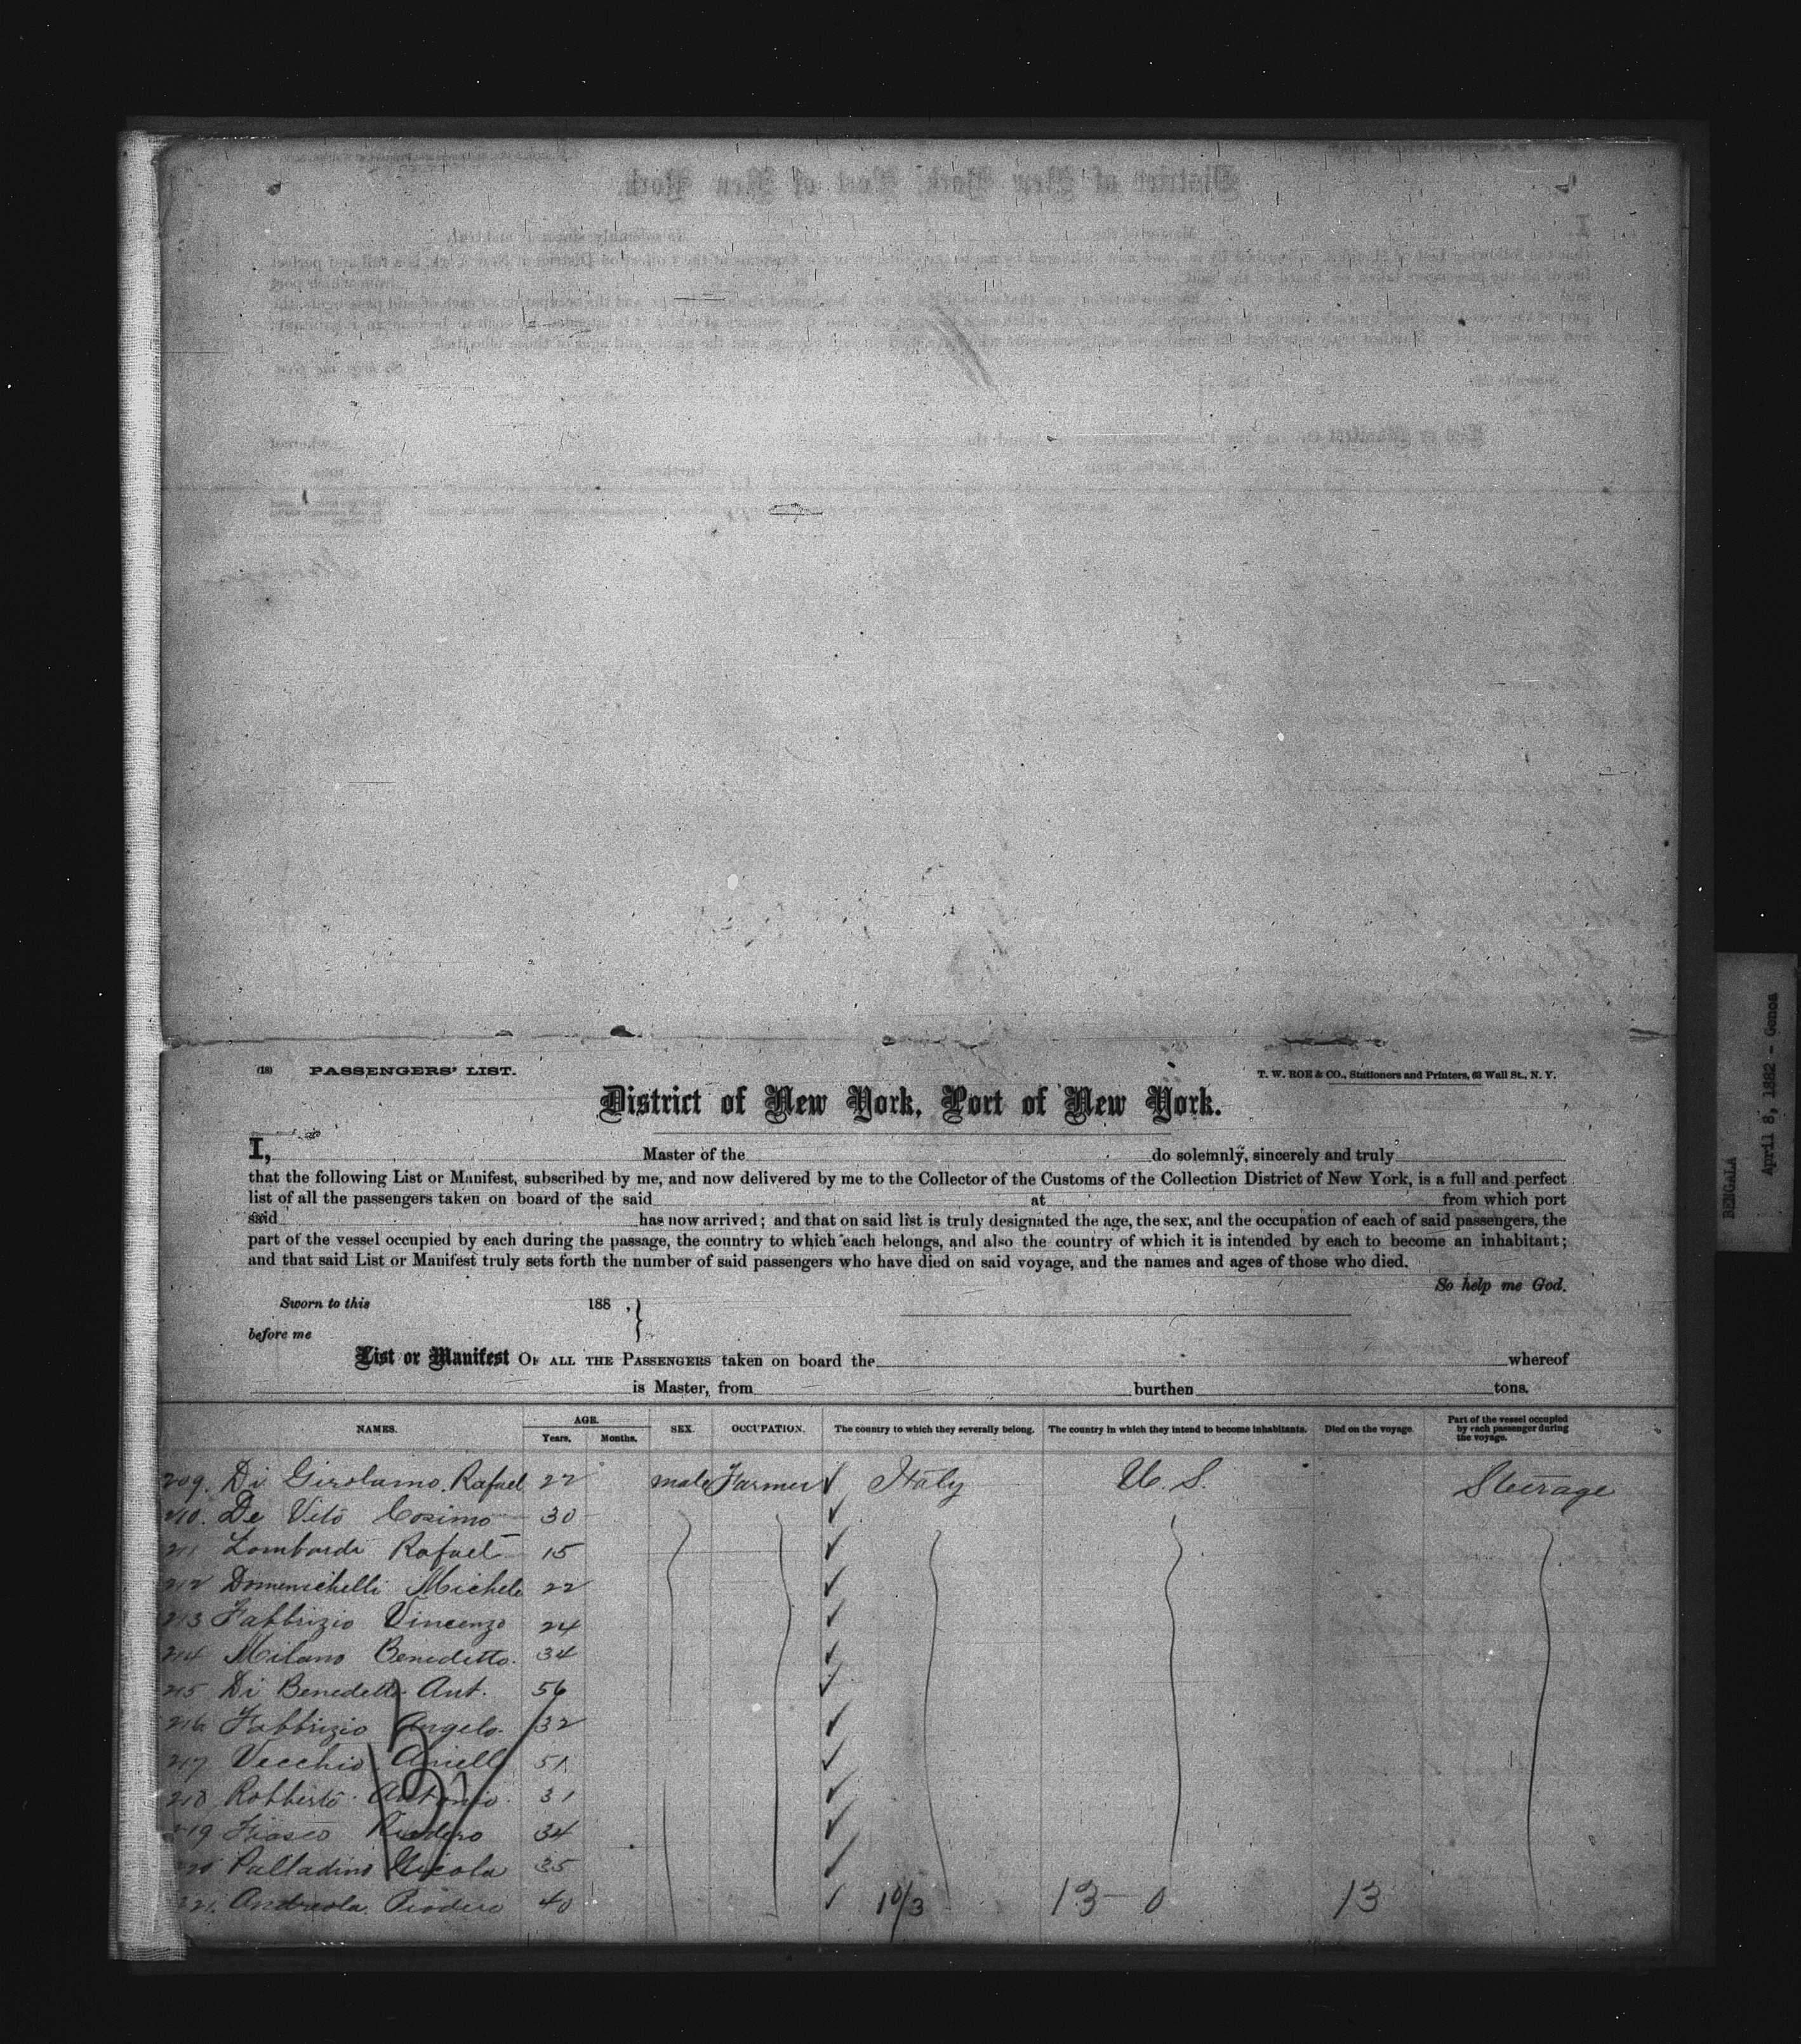 (18) PASSENGERS' LIST. T. W. ROE & CO., Stationers and Printers, 63 Wall St., N. Y.
District of New York, Port of New York.
I, Master of the do solemnly, sincerely and truly
that the following List or Manifest, subscribed by me, and now delivered by me to the Collector of the Customs of the Collection District of New York, is a full and perfect
list of all the passengers taken on board of the said at from which port
said has now arrived; and that on said list is truly designated the age, the sex, and the occupation of each of said passengers, the
part of the vessel occupied by each during the passage, the country to which each belongs, and also the country of which it is intended by each to become an inhabitant;
and that said List or Manifest truly sets forth the number of said passengers who have died on said voyage, and the names and ages of those who died.
So help me God.
Sworn to this 188 ,
before me
List or Manifest OF ALL THE PASSENGERS taken on board the whereof
is Master, from burthen tons.
NAMES. AGE. Years. Months. SEX. OCCUPATION. The country to which they severally belong. The country in which they intend to become inhabitants. Died on the voyage. Part of the vessel occupied by each passenger during the voyage.
209. Di Girolamo Rafael 22 male Farmer Italy U. S. Steerage
210. De Vito Cosimo 30
211 Lombardi Rafael 15
212 Domenichelli Michele 22
213 Fabbrizio Vincenzo 24
214 Milano Benedetto. 34
215 Di Benedetto Ant. 56
216 Fabbrizio Angelo. 32
217 Vecchio Aniello 51
218 Robberto Antonio. 31
219 Fiasco 34
220 Palladino Nicola 35
221. Andreola 40 10/3 13 0 13
BENGALA
April 8, 1882 - Genoa